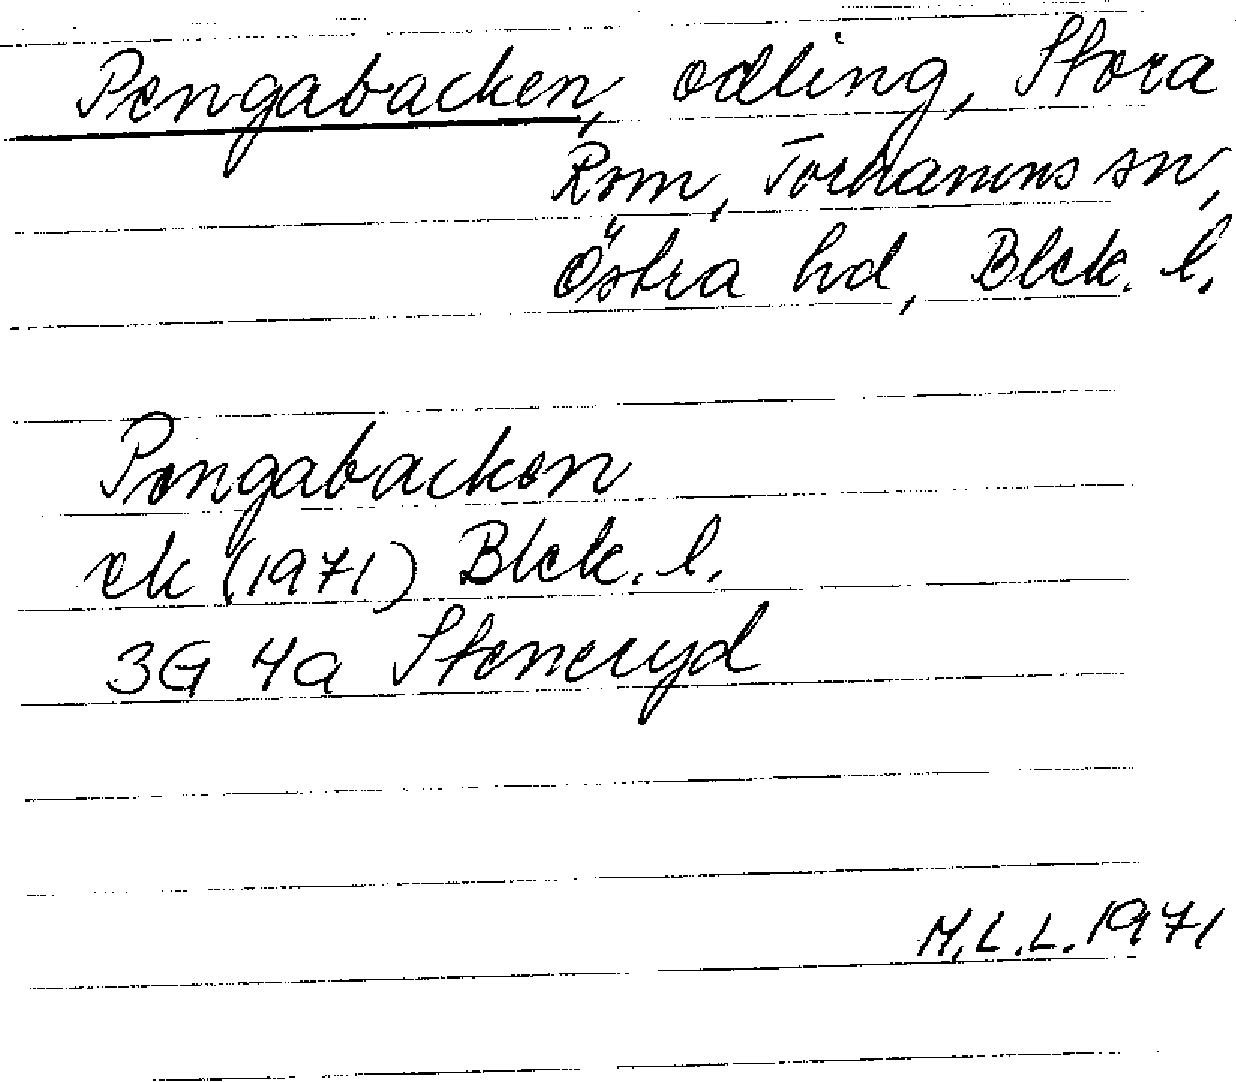 Pengabacken, odling, Stora
Rom, Torhamns sn,
Östra hd, Blek. l.
Pengabacken
ek (1971) Blek. l.
3G 4a Steneryd
M.L.L. 1971